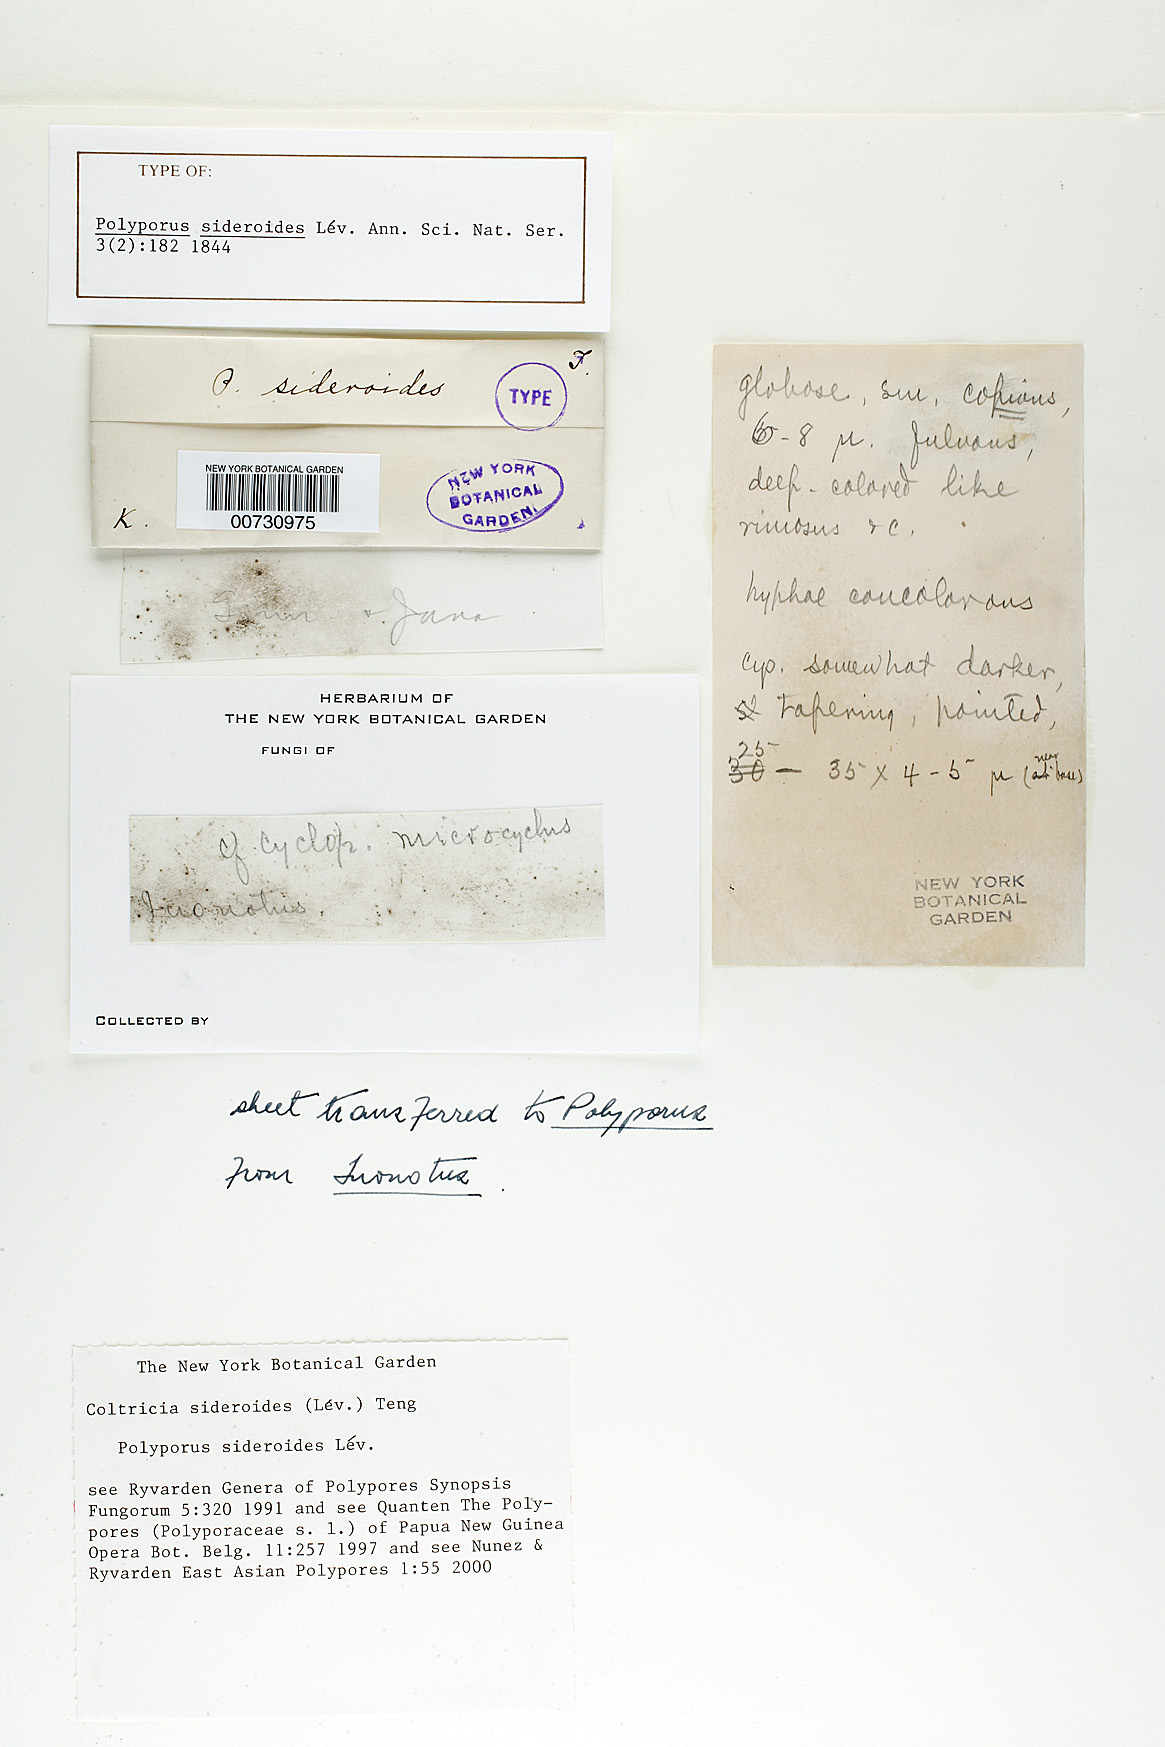 TYPE OF:
Polyporus sideroides Lév. Ann. Sci. Nat. Ser.
3(2):182 1844
F.
P. sideroides
TYPE
NEW YORK BOTANICAL GARDEN
00730975
K.
NEW YORK
BOTANICAL
GARDEN.
Java
HERBARIUM OF
THE NEW YORK BOTANICAL GARDEN
FUNGI OF
cf cyclop. microcyclus
Inonotus.
COLLECTED BY
sheet transferred to Polyporus
from Inonotus.
The New York Botanical Garden
Coltricia sideroides (Lév.) Teng
Polyporus sideroides Lév.
see Ryvarden Genera of Polypores Synopsis
Fungorum 5:320 1991 and see Quanten The Poly-
pores (Polyporaceae s. l.) of Papua New Guinea
Opera Bot. Belg. 11:257 1997 and see Nunez &
Ryvarden East Asian Polypores 1:55 2000
globose, sm, copious,
6-8 µ. fulvous,
deep-colored like
rimosus &c.
hyphae concolorous
cyp. somewhat darker,
tapering, pointed,
25
30 — 35 x 4-5 µ (near at base)
NEW YORK
BOTANICAL
GARDEN